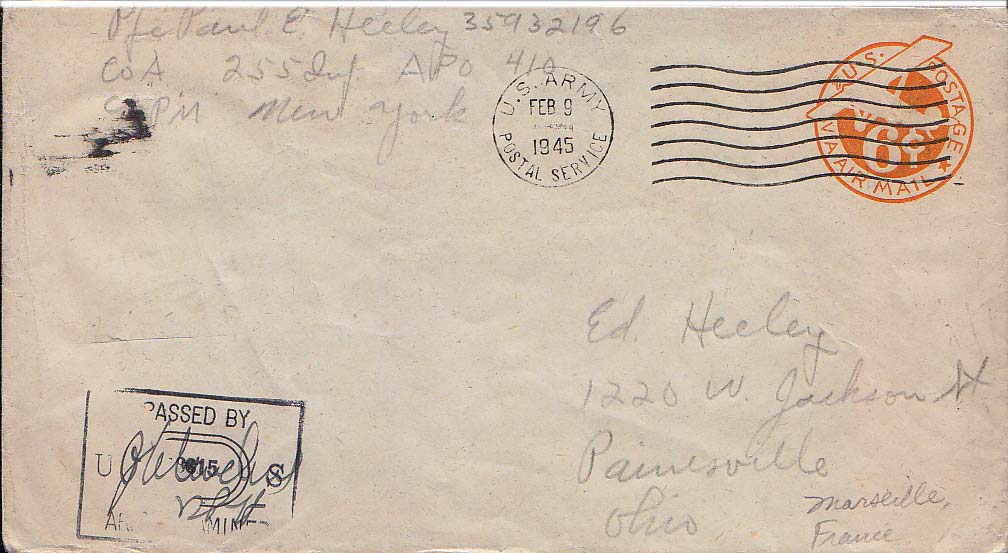 Pfc Paul E. Heeley 35932196
Co A 255 Inf. APO 410
℅ PM New York
U.S. ARMY
FEB 9
1945
POSTAL SERVICE
U.S. POSTAGE
6¢
VIA AIR MAIL
Ed. Heeley
1220 W. Jackson St
Painesville
Ohio
Marseille,
France
PASSED BY
U S